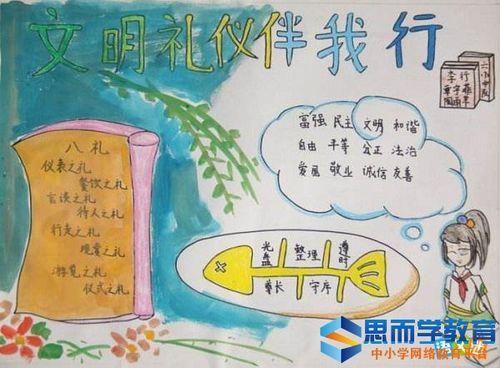 文明礼仪伴我行
八礼
仪表之礼
餐饮之礼
言谈之礼
待人之礼
行走之礼
观赏之礼
游览之礼
仪式之礼
富强 民主 文明 和谐
自由 平等 公正 法治
爱国 敬业 诚信 友善
光盘 整理 遵时
尊长 守序
思而学教育
中小学网络教育平台